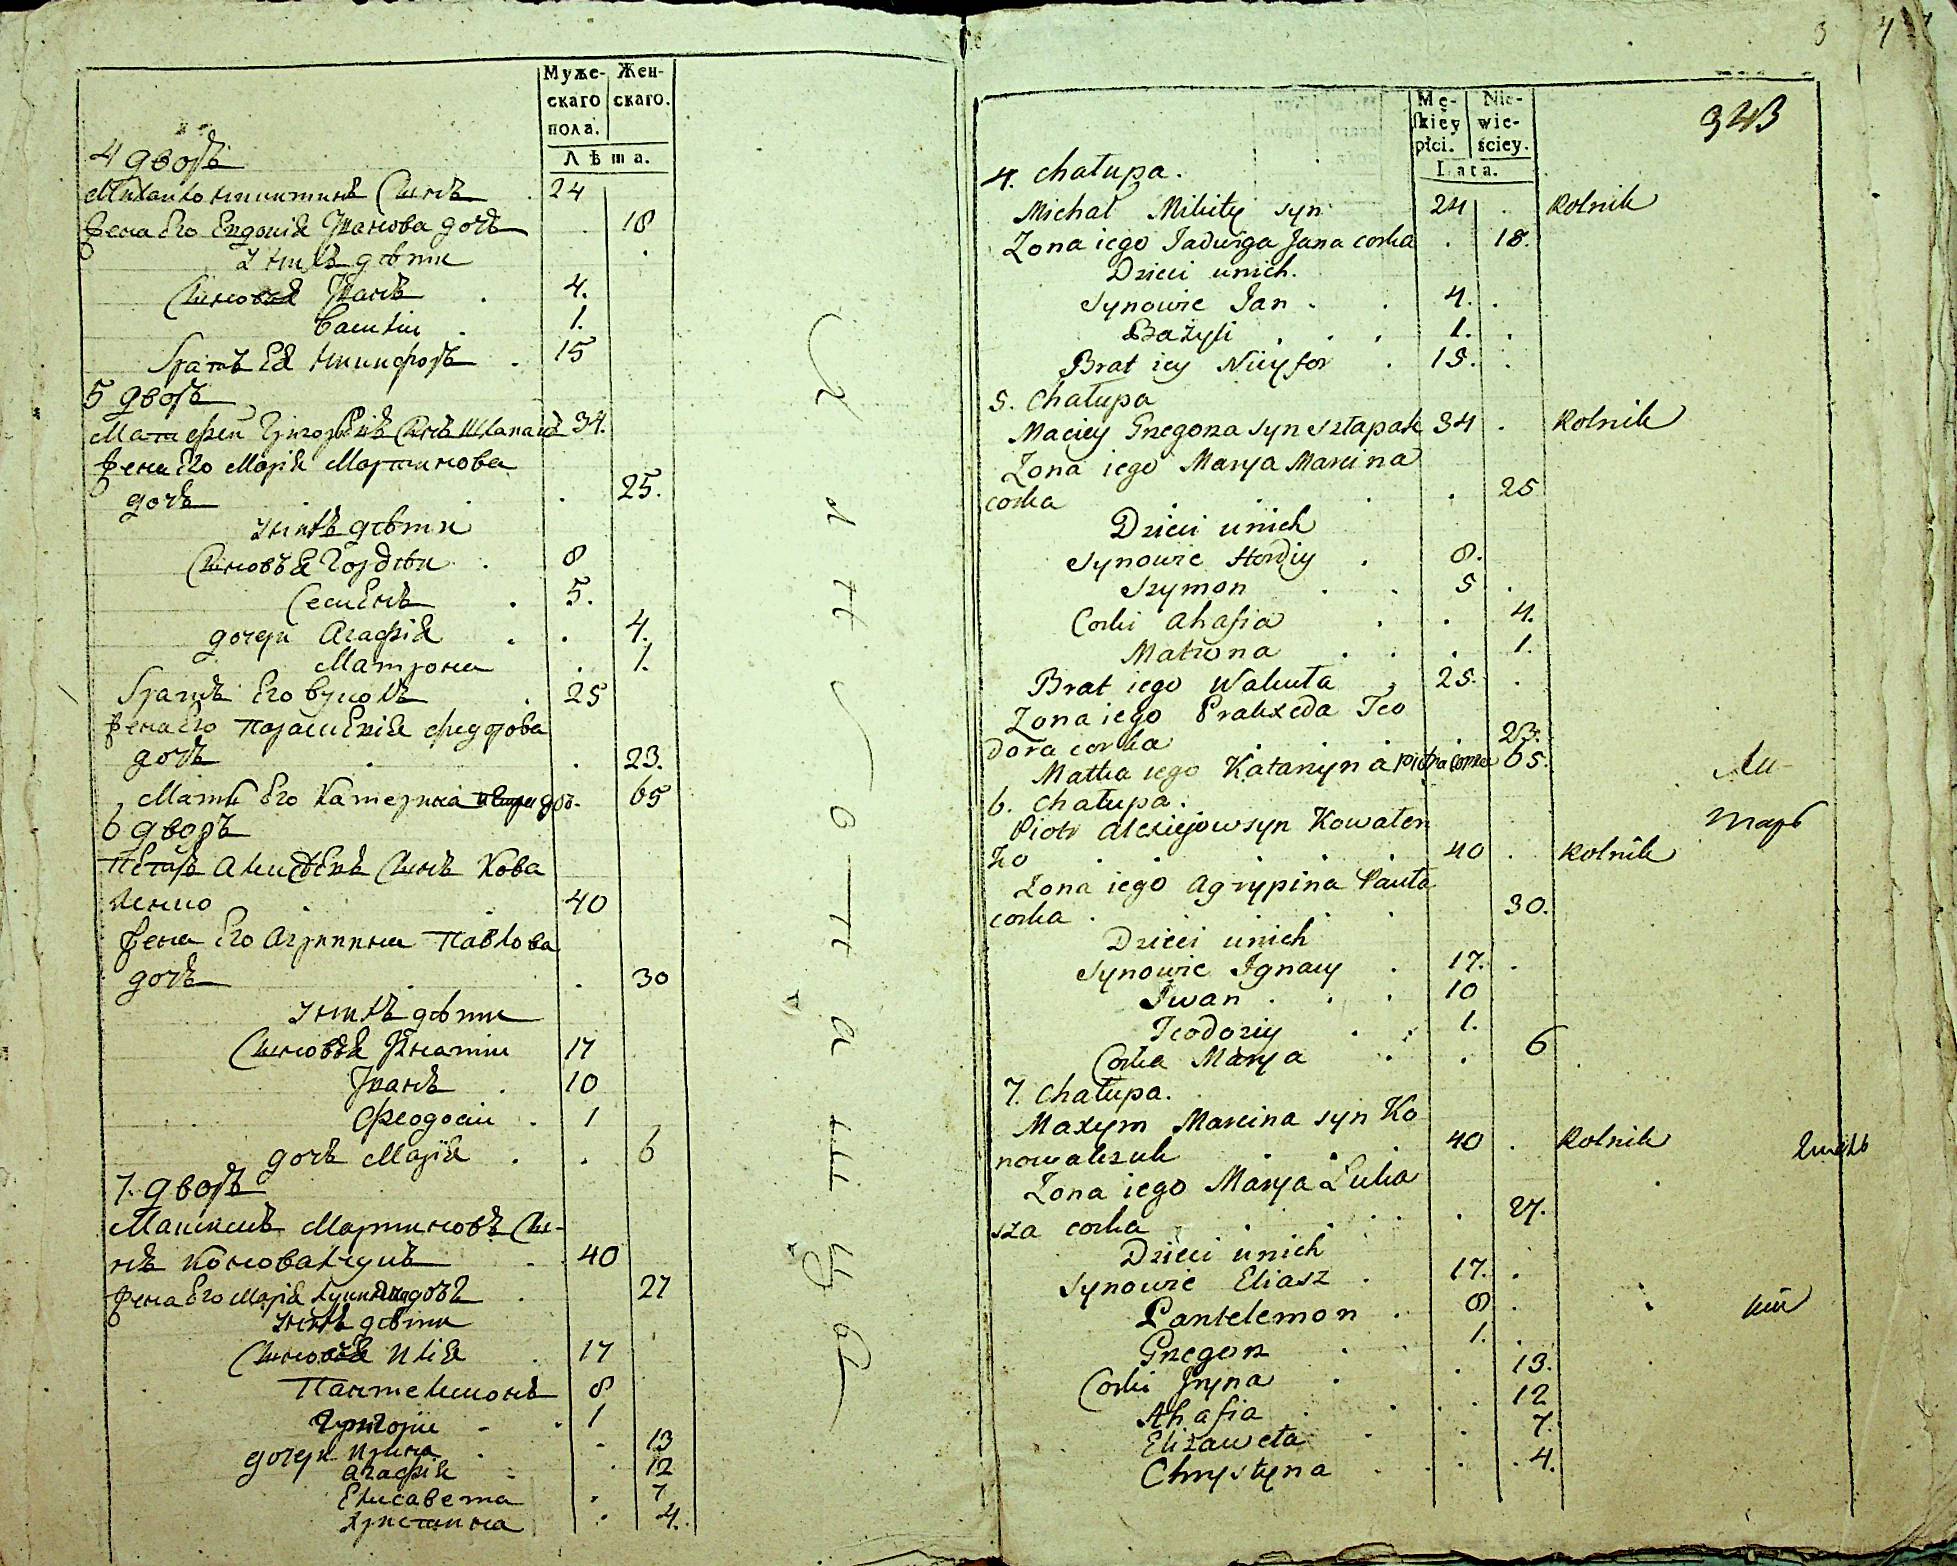 Муже-
скаго
пола.
Жен-
скаго.
Лѣта.
4 дворъ
Михайло Никитинъ Сынъ 24
жена Его Евдокія Іванова дочь 18
У нихъ дѣти
Сыновья Іванъ 4.
Василий 1.
братъ Ея Никифоръ 15
5 дворъ
Матфей Григорьевъ Сынъ Шлапакъ 34.
жена Его Марія Мартинова
дочь 25.
У нихъ дѣти
Сыновья Гордѣй 8
Семенъ 5.
дочери Агафія 4.
Матрона 1.
братъ Его Вуколъ 25
жена Его Парасковія Федорова
дочь 23.
Мать Его Катерина дочь 65
6 дворъ
Петръ Алиѯѣевъ Сынъ Кова
ленко 40
жена Его Агрипина Павлова
дочь 30
У нихъ дѣти
Сыновья Игнатій 17
Іванъ 10
Феодосій 1
дочь Марія 6
7. дворъ
Максимъ Мартиновъ Сы-
нъ Коновалчукъ 40
жена Его Марія дочь 27
У нихъ дѣти
Сыновья Илія 17
Пантелимонъ 8
Григорій 1
дочери Ирина 13
Агафія 12
Елисавета 7
Христина 4.
3 4
343
Mę-
skiey
płci.
Nie-
wie-
ściey.
Lata.
4. Chałupa.
Michał Mikity syn 24 Rolnik
Zona iego Jadwiga Jana corka 18.
Dzieci unich.
Synowie Jan 4.
Bazyli 1.
Brat iey Nicyfor 15.
5. Chałupa
Maciey Grzegorza syn Szłapak 34 Rolnik
Zona iego Marya Marcina
corka 25
Dzieci unich
Synowie Hordiy 8.
Szymon 5
Corki Ahafia 4.
Matrona 1.
Brat iego Wakuła 25.
Zona iego Prakxeda Teo
dora corka 23.
Matka iego Katarzyna Piotra corka 65.
6. Chałupa.
Piotr Alexiejow syn Kowalen
ko 40 Rolnik
Zona iego Agrypina Pawła
corka 30.
Dzieci unich
Synowie Ignacy 17.
Iwan 10
Teodoziy 1.
Corka Marya 6
7. Chałupa.
Maxym Marcina syn Ko
nowalczuk 40 Rolnik
Zona iego Marya Łuka
sza corka 27.
Dzieci unich
Synowie Eliasz 17.
Pantelemon 8
Grzegorz 1.
Corki Jryna 13.
Ahafia 12
Elizaweta 7.
Chrystyna 4.